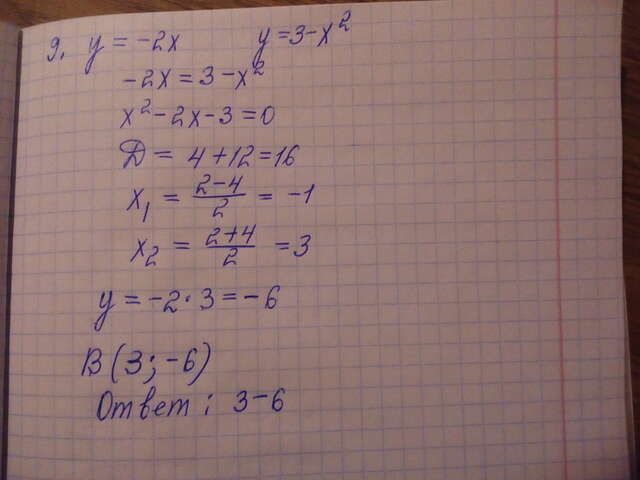 9. y = -2x    y = 3 - x²
-2x = 3 - x²
x² - 2x - 3 = 0
D = 4 + 12 = 16
x₁ = (2-4)/2 = -1
x₂ = (2+4)/2 = 3
y = -2 · 3 = -6
B (3; -6)
Ответ: 3 - 6